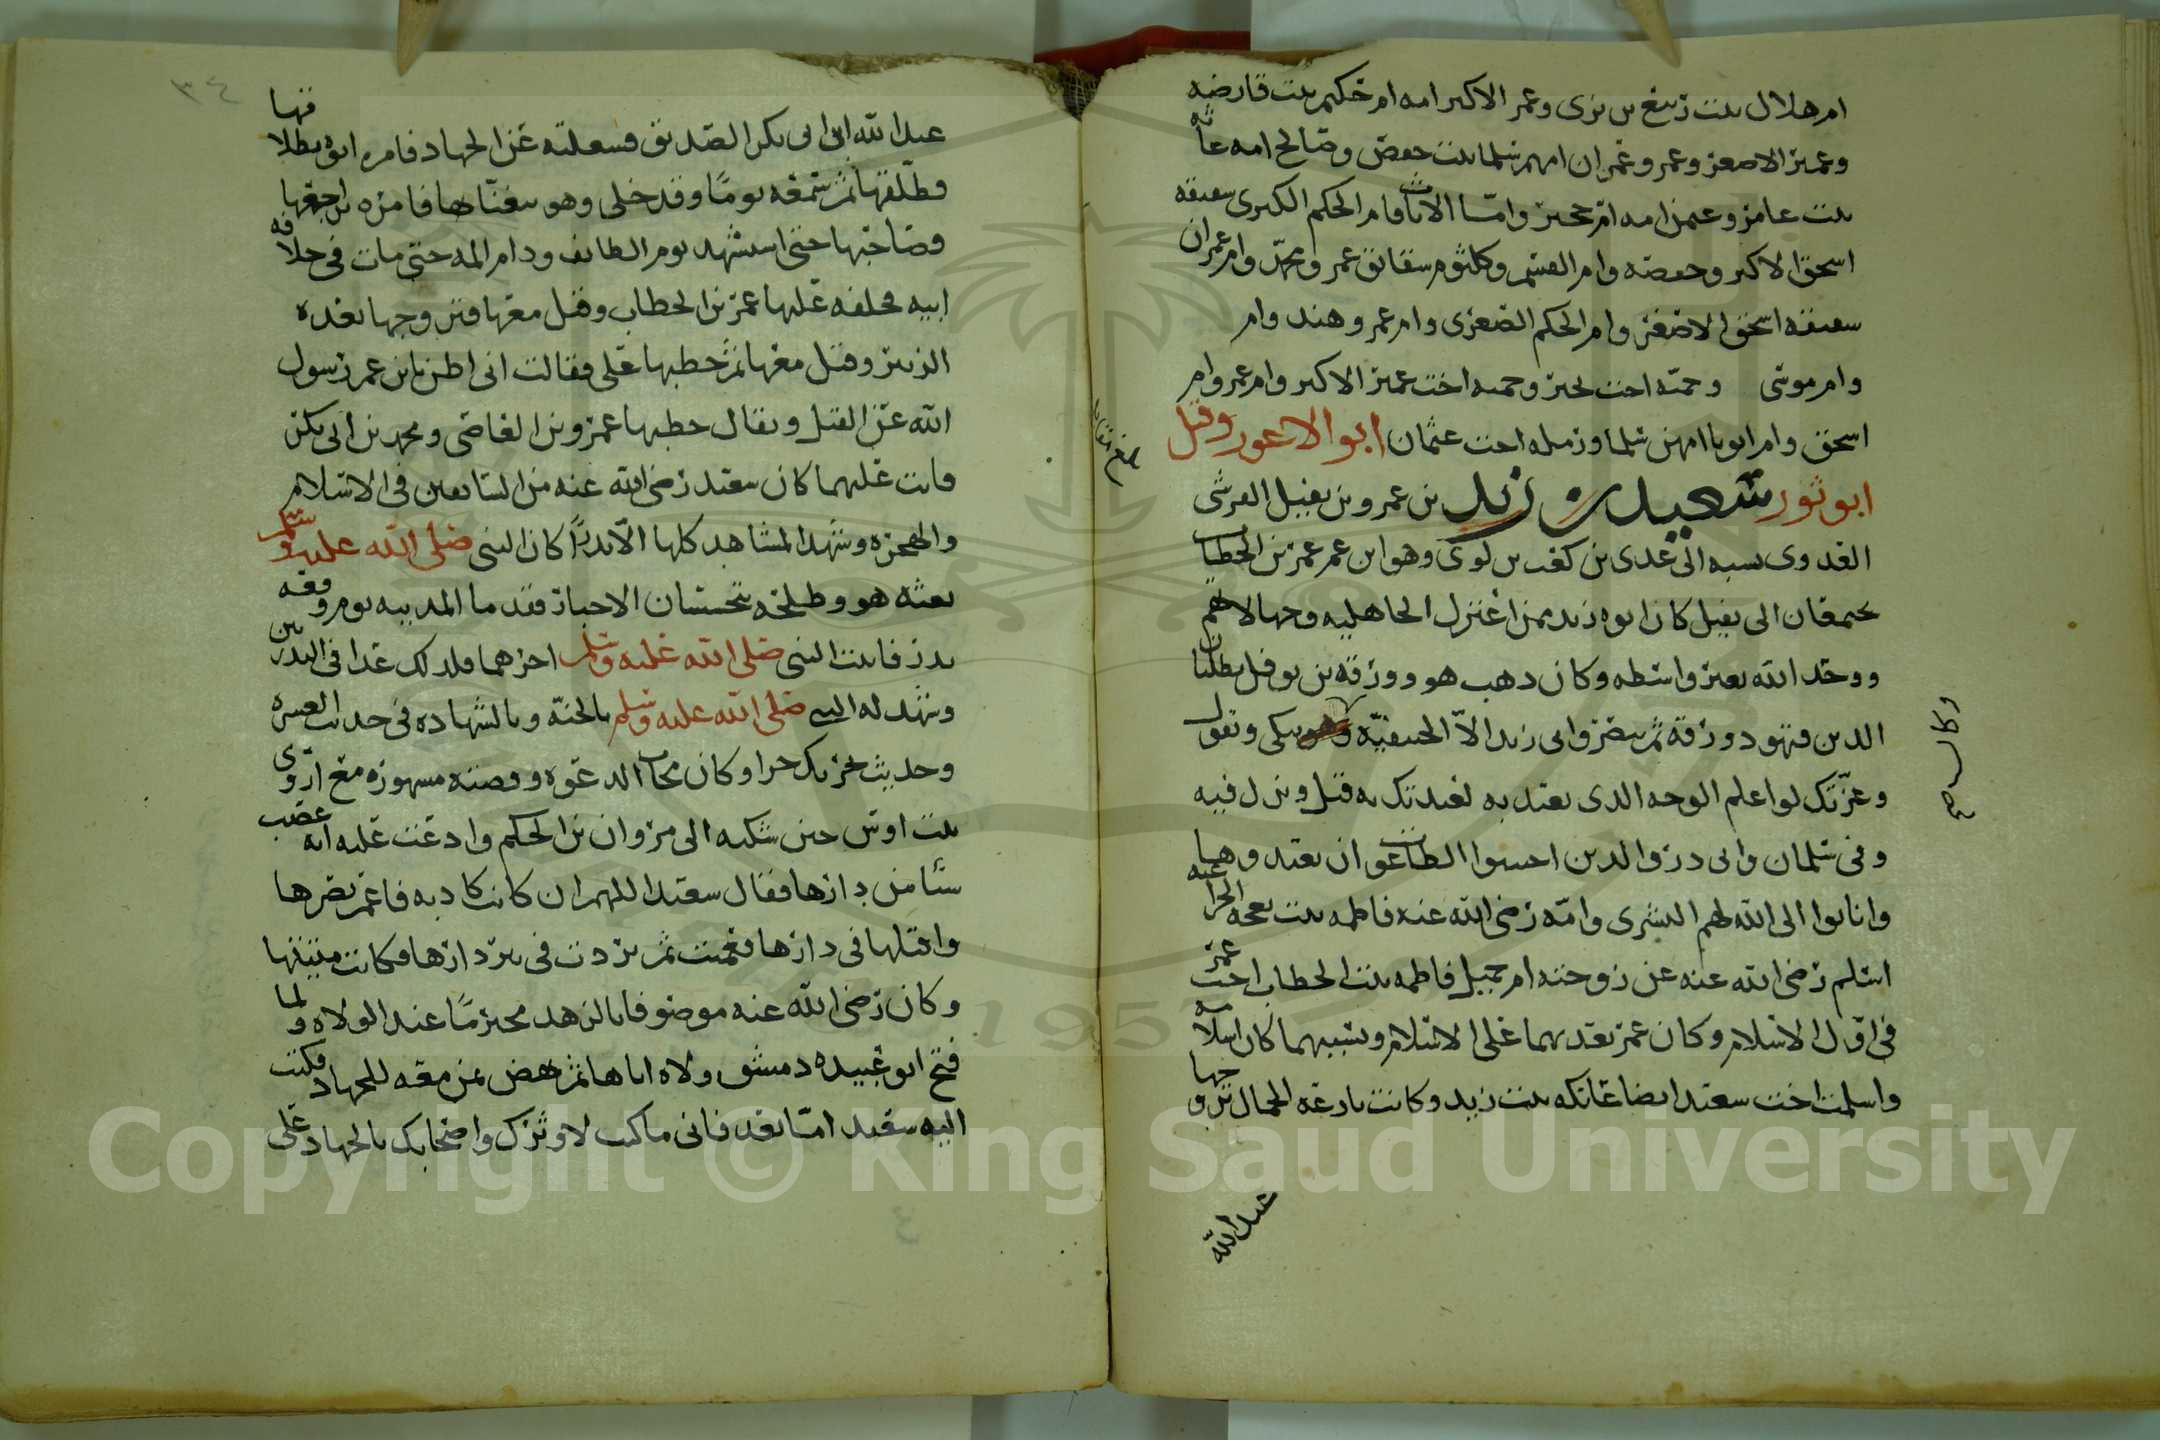 ام هلال بنت ربيع بن بزى وعمر الاكبر امه ام حكيم بنت قارضه
وعمير الاصغر وعمرو وعمران امهم سلما بنت حفص وصالح امه عاثه
بنت عامر وعمر امه ام حجير واما الاناث فام الحكم الكبرى شقيقه
اسحق الاكبر وحفصه وام القسم وكلثوم شقايق عمر ومحمد وام عمران
شقيقه اسحق الاصغر وام الحكم الصغرى وام عمرو وهند وام
وام موسى وحمنه اخت وحميه اخت عمير الاكبر وام عمر وام
اسحق وام ايوب امهن سلما ورمله اخت عثمان ابو الاعور وقيل
ابو ثور سعيد بن زيد بن عمرو بن نفيل القرشى
العدوى نسبه الى عدى بن كعب بن لوى وهو ابن عم عمر بن الخطاب
يجتمعان الى نفيل كان ابوه زيد ممن اعتزل الجاهليه وجهالاتهم
ووحد الله بغير واسطه وكان ذهب هو وورقه بن نوفل يطلبان
الدين فتهود ورقه ثم تنصر وابى زيد الا الحنيفيه وهو يبكى ويقول
وعزتك لو اعلم الوجه الذى تعبد به لعبدتك به قيل ونزل فيه
وفى سلمان وابى ذر والذين اجتنبوا الطاغوت ان يعبدوها
وانابوا الى الله لهم البشرى وامه رضى الله عنه فاطمه بنت بعجه الخزاعيه
اسلم رضى الله عنه عن زوجته ام جميل فاطمه بنت الخطاب اخت عمر
فى اول الاسلام وكان عمر يعذبهما على الاسلام وبسببهما كان اسلامه
واسلمت اخت سعيد ايضا عاتكه بنت زيد وكانت بارعه الجمال تزوجها
عبد الله
٣٤
عبد الله ابن ابى بكر الصديق فشغلته عن الجهاد فامره ابوه بطلاقها
فطلقها ثم سمعه يوما وقد خلى وهو يتغنا بها فامره بمراجعتها
وصاحبها حتى استشهد يوم الطائف ودام المه حتى مات فى خلافه
ابيه فخلفه عليها عمر بن الخطاب وقتل معها فتزوجها بعده
الزبير وقتل معها ثم خطبها على فقالت انى اظن بابن عم رسول
الله عن القتل ويقال خطبها عمرو بن العاصى ومحمد بن ابى بكر
فابت عليهما كان سعيد رضى الله عنه من السابقين فى الاسلام
والهجره وشهد المشاهد كلها الا بدرا كان النبى صلى الله عليه وسلم
بعثه هو وطلحه يتحسسان الاخبار فقدما المدينه يوم وقعه
بدر فاثبت النبى صلى الله عليه وسلم اجرهما فلذلك عدا فى البدريين
وشهد له النبى صلى الله عليه وسلم بالجنه وبالشهاده فى حديث العشره
وحديث تحريك حرا وكان مجاب الدعوه وقصته مشهوره مع اروى
بنت اوس حين شكته الى مروان بن الحكم وادعت عليه انه غصب
شيا من دارها فقال سعيد اللهم ان كانت كاذبه فاعم بصرها
واقتلها فى دارها فعميت ثم تردت فى بير دارها فكانت منيتها
وكان رضى الله عنه موصوفا بالزهد محترما عند الولاه ولما
فتح ابو عبيده دمشق ولاه اياها ثم نهض بمن معه للجهاد فكتب
اليه سعيد اما بعد فانى ما كنت لاوثرك واصحابك بالجهاد على
Copyright © King Saud University
1957